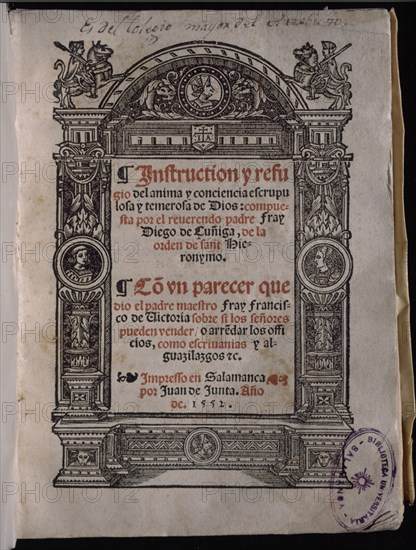 Es del Colegio mayor del Arzobispo.
¶ Instruction y refu
gio del anima y conciencia escrupu
losa y temerosa de Dios: compue-
sta por el reuerendo padre Fray
Diego de Cuñiga, de la
orden de sant Hie-
ronymo.
¶ Cõ vn parecer que
dio el padre maestro Fray Francis-
co de Victoria sobre si los señores
pueden vender / o arrẽdar los offi
cios, como escriuanias y al-
guazilazgos ⁊c.
Impresso en Salamanca
por Juan de Junta. Año
de. 1552.
BIBLIOTECA UNIVERSITARIA
SALAMANCA
PHOTO12